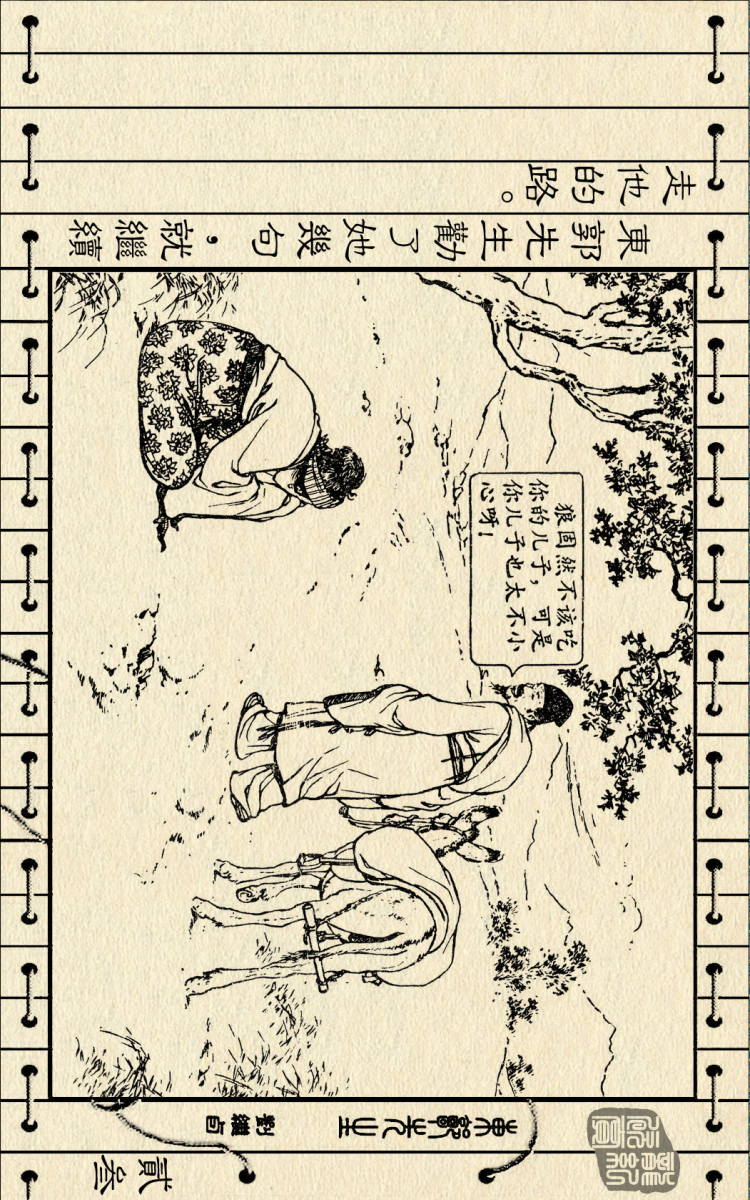 東郭先生勸了她幾句，就繼續
走他的路。
狼固然不该吃
你的儿子，可是
你儿子也太不小
心呀！
東郭先生
劉繼卣
貳叁